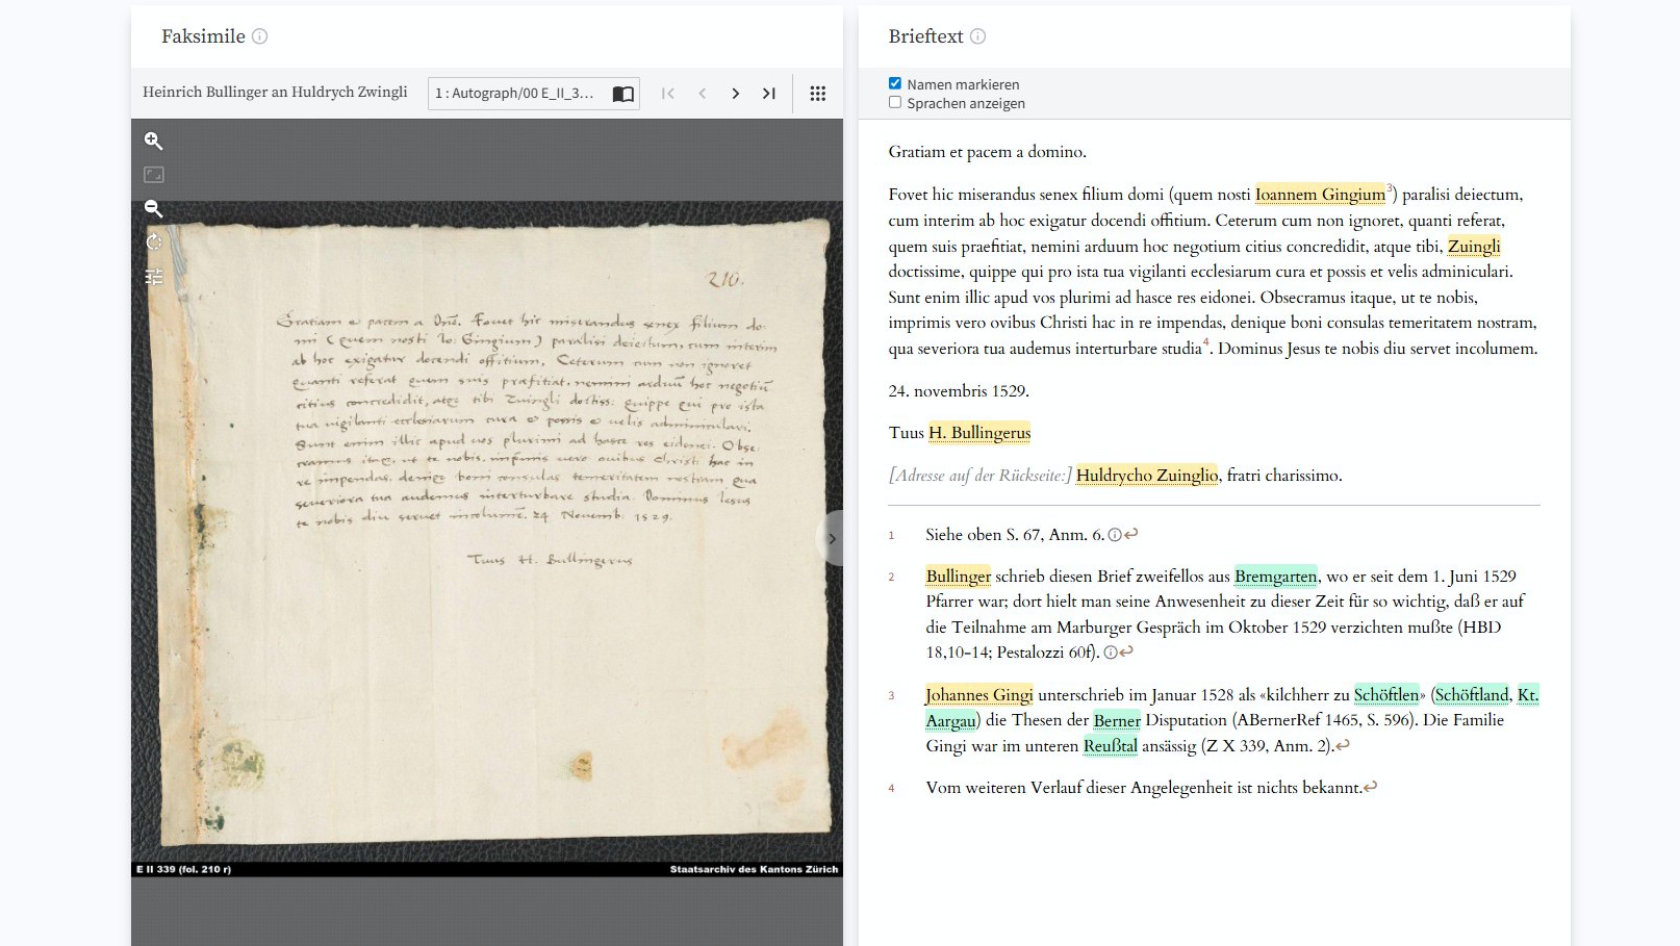 Faksimile
Heinrich Bullinger an Huldrych Zwingli
1 : Autograph/00 E_II_3...
210.
Gratiam et pacem a Dno. Fouet hic miserandus senex filium do-
mi (quem nosti Io. Gingium) paralisi deiectum, cum interim
ab hoc exigatur docendi offitium. Ceterum cum non ignoret
quanti referat quem suis præfitiat, nemini arduum hoc negotiū
citius concredidit, atque tibi Zuingli doctiss: quippe qui pro ista
tua vigilanti ecclesiarum cura et possis et velis adminiculari.
Sunt enim illic apud vos plurimi ad hasce res eidonei. Obse-
cramus itaque, ut te nobis, imprimis vero ovibus Christi hac in
re impendas, denique boni consulas temeritatem nostram qua
severiora tua audemus interturbare studia. Dominus Iesus
te nobis diu servet incolumē. 24 Novemb. 1529.
Tuus H. Bullingerus
E II 339 (fol. 210 r)
Staatsarchiv des Kantons Zürich
Brieftext
Namen markieren
Sprachen anzeigen
Gratiam et pacem a domino.
Fovet hic miserandus senex filium domi (quem nosti Ioannem Gingium3) paralisi deiectum,
cum interim ab hoc exigatur docendi offitium. Ceterum cum non ignoret, quanti referat,
quem suis praefitiat, nemini arduum hoc negotium citius concredidit, atque tibi, Zuingli
doctissime, quippe qui pro ista tua vigilanti ecclesiarum cura et possis et velis adminiculari.
Sunt enim illic apud vos plurimi ad hasce res eidonei. Obsecramus itaque, ut te nobis,
imprimis vero ovibus Christi hac in re impendas, denique boni consulas temeritatem nostram,
qua severiora tua audemus interturbare studia4. Dominus Jesus te nobis diu servet incolumem.
24. novembris 1529.
Tuus H. Bullingerus
[Adresse auf der Rückseite:] Huldrycho Zuinglio, fratri charissimo.
1 Siehe oben S. 67, Anm. 6.
2 Bullinger schrieb diesen Brief zweifellos aus Bremgarten, wo er seit dem 1. Juni 1529
Pfarrer war; dort hielt man seine Anwesenheit zu dieser Zeit für so wichtig, daß er auf
die Teilnahme am Marburger Gespräch im Oktober 1529 verzichten mußte (HBD
18,10-14; Pestalozzi 60f).
3 Johannes Gingi unterschrieb im Januar 1528 als «kilchherr zu Schöftlen» (Schöftland, Kt.
Aargau) die Thesen der Berner Disputation (ABernerRef 1465, S. 596). Die Familie
Gingi war im unteren Reußtal ansässig (Z X 339, Anm. 2).
4 Vom weiteren Verlauf dieser Angelegenheit ist nichts bekannt.